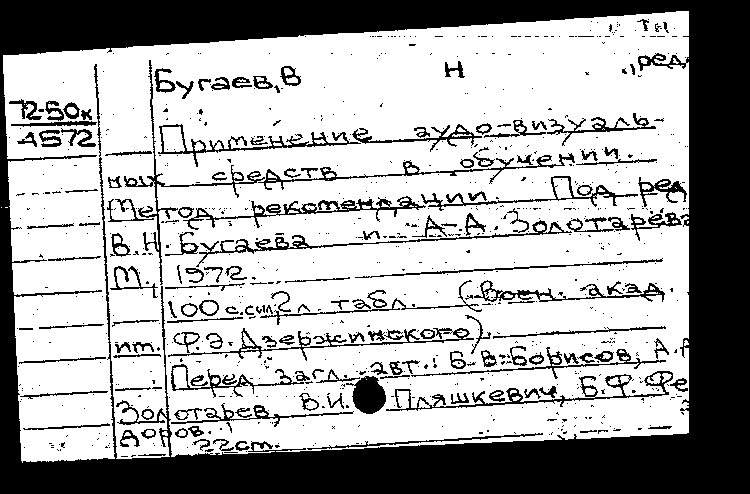 Бугаев, В Н ., ред.
72-50к
4572
Применение аудо-визуаль-
ных средств в обучении.
Метод. рекомендации. Под ред
В.Н. Бугаева и А.А. Золотарева
М., 1972.
100 с. 2 л. табл. (Воен. акад.
им. Ф.Э. Дзержинского).
Перед загл. авт.: Б.В. Борисов, А.А
Золотарев, В.И. Пляшкевич, Б.Ф. Фе
доров. 22см.